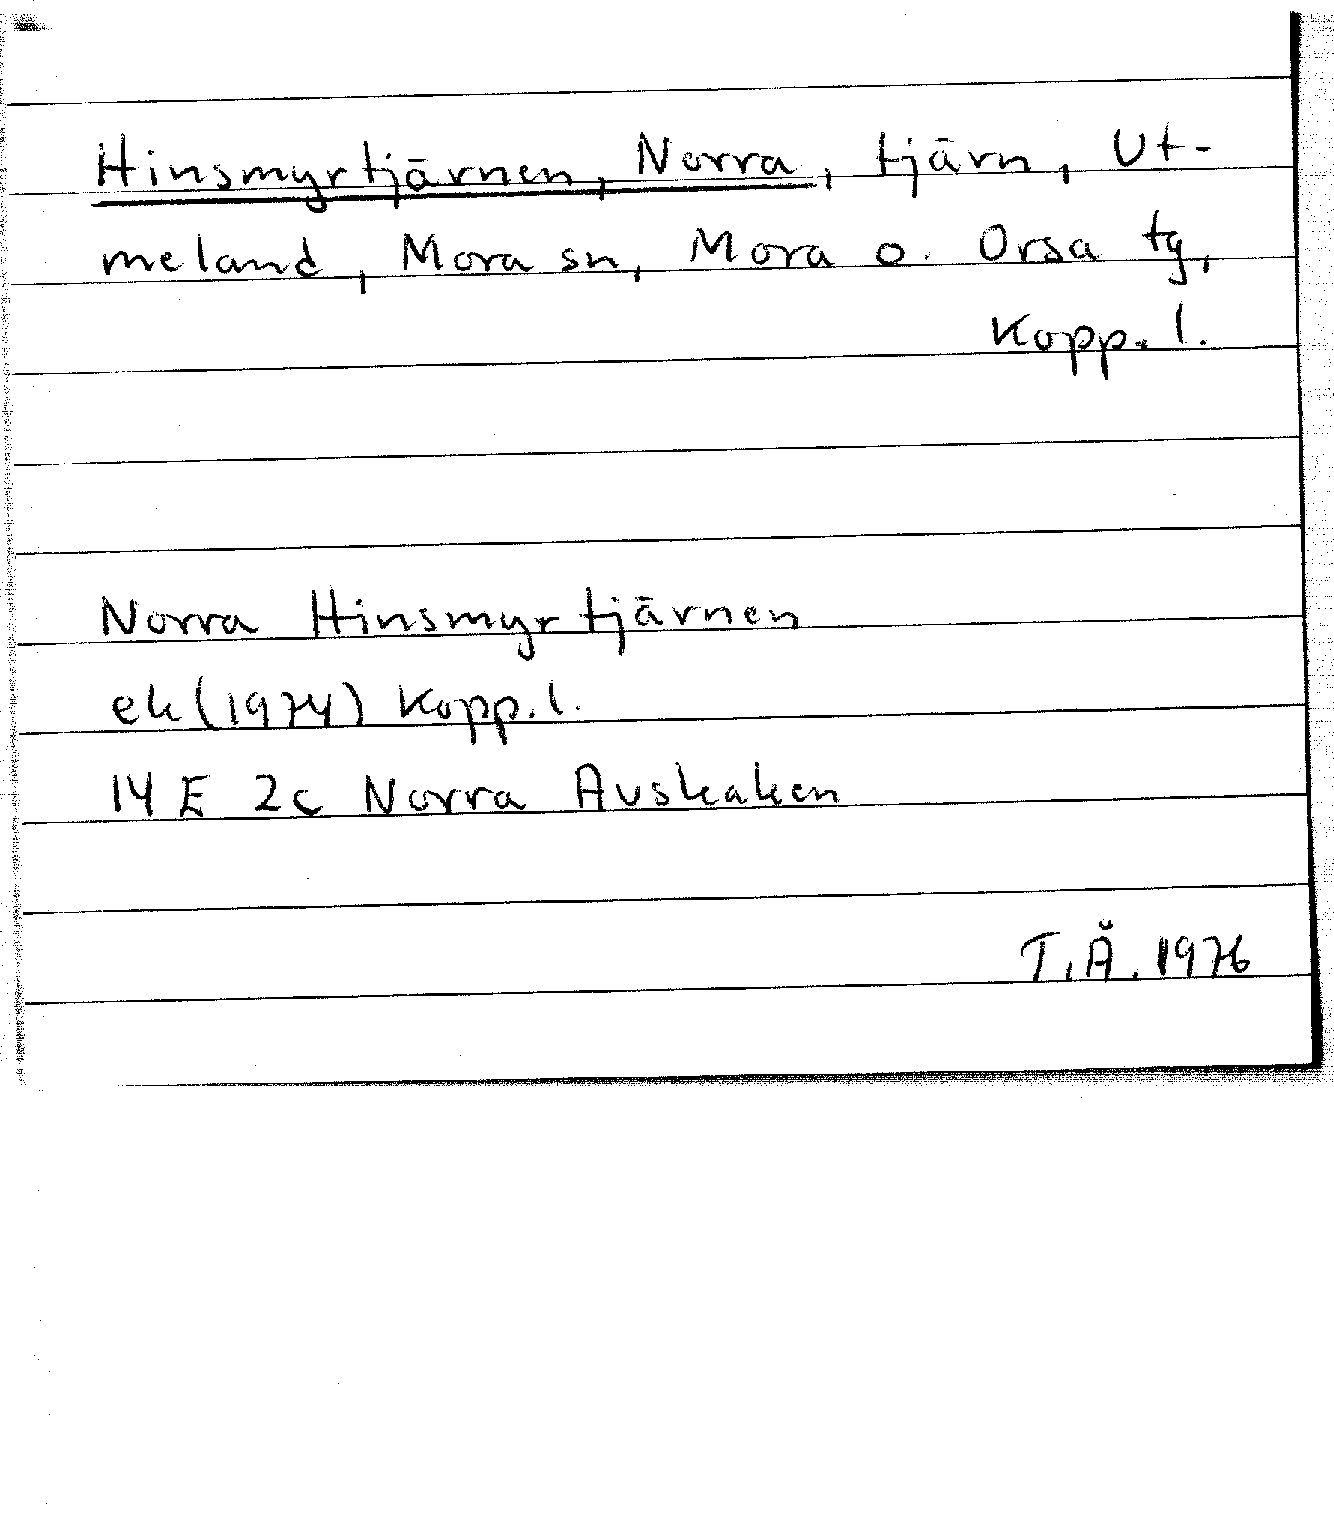 Hinsmyrtjärnen, Norra, tjärn, Ut-
meland, Mora sn, Mora o. Orsa tg,
Kopp. l.
Norra Hinsmyrtjärnen
ek (1974) Kopp. l.
14 E 2c Norra Auskaken
T.Å. 1976